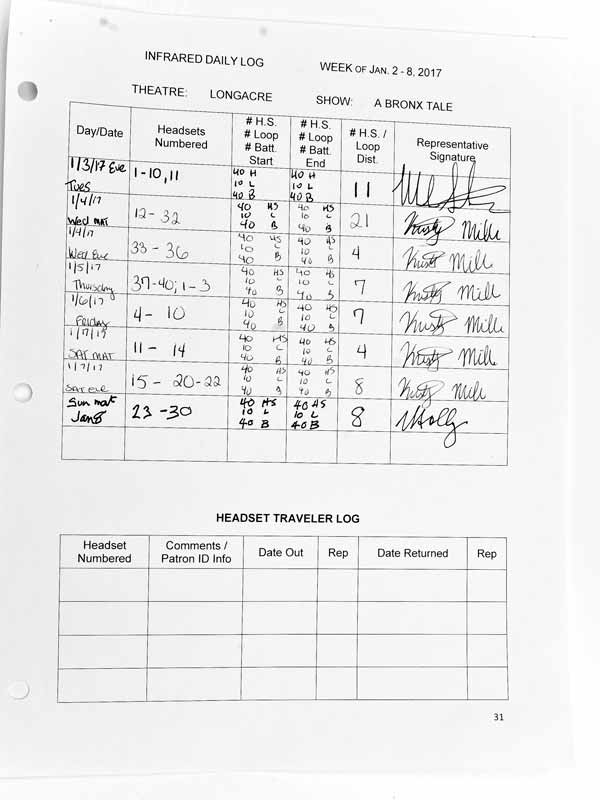 INFRARED DAILY LOG WEEK OF JAN. 2 - 8, 2017
THEATRE: LONGACRE SHOW: A BRONX TALE
Day/Date
Headsets
Numbered
# H.S.
# Loop
# Batt.
Start
# H.S.
# Loop
# Batt.
End
# H.S. /
Loop
Dist.
Representative
Signature
1/3/17 Eve
Tues
1-10, 11
40 H
10 L
40 B
40 H
10 L
40 B
11
1/4/17
Wed MAT
12 - 32
40 HS
10 L
40 B
40 HS
10 L
40 B
21
Kristy Mill
1/4/17
Wed Eve
33 - 36
40 HS
10 L
40 B
40 HS
10 L
40 B
4
Kristy Mill
1/5/17
Thursday
37-40; 1-3
40 HS
10 L
40 B
40 HS
10 L
40 B
7
Kristy Mill
1/6/17
Friday
4 - 10
40 HS
10 L
40 B
40 HS
10 L
40 B
7
Kristy Mill
1/7/17
SAT MAT
11 - 14
40 HS
10 L
40 B
40 HS
10 L
40 B
4
Kristy Mill
1/7/17
SAT EVE
15 - 20-22
40 HS
10 L
40 B
40 HS
10 L
40 B
8
Kristy Mill
Sun mat
Jan 8
23 -30
40 HS
10 L
40 B
40 HS
10 L
40 B
8
HEADSET TRAVELER LOG
Headset
Numbered
Comments /
Patron ID Info
Date Out
Rep
Date Returned
Rep
31